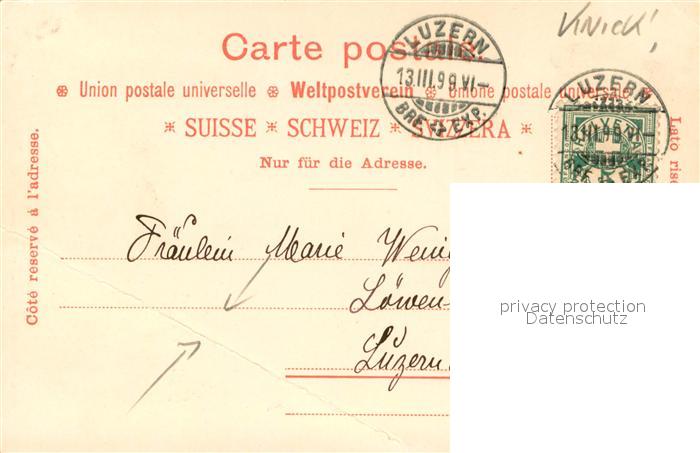 Knick!
Carte postale.
Union postale universelle Weltpostverein Unione postale universale
SUISSE SCHWEIZ SVIZZERA
Nur für die Adresse.
Côté reservé à l'adresse.
Lato rise
LUZERN
13.III.99.VI-
BRF. EXP.
LUZERN
13.III.99.VI-
BRF. EXP.
Fräulein Marie
Löwen-
Luzern.
privacy protection
Datenschutz